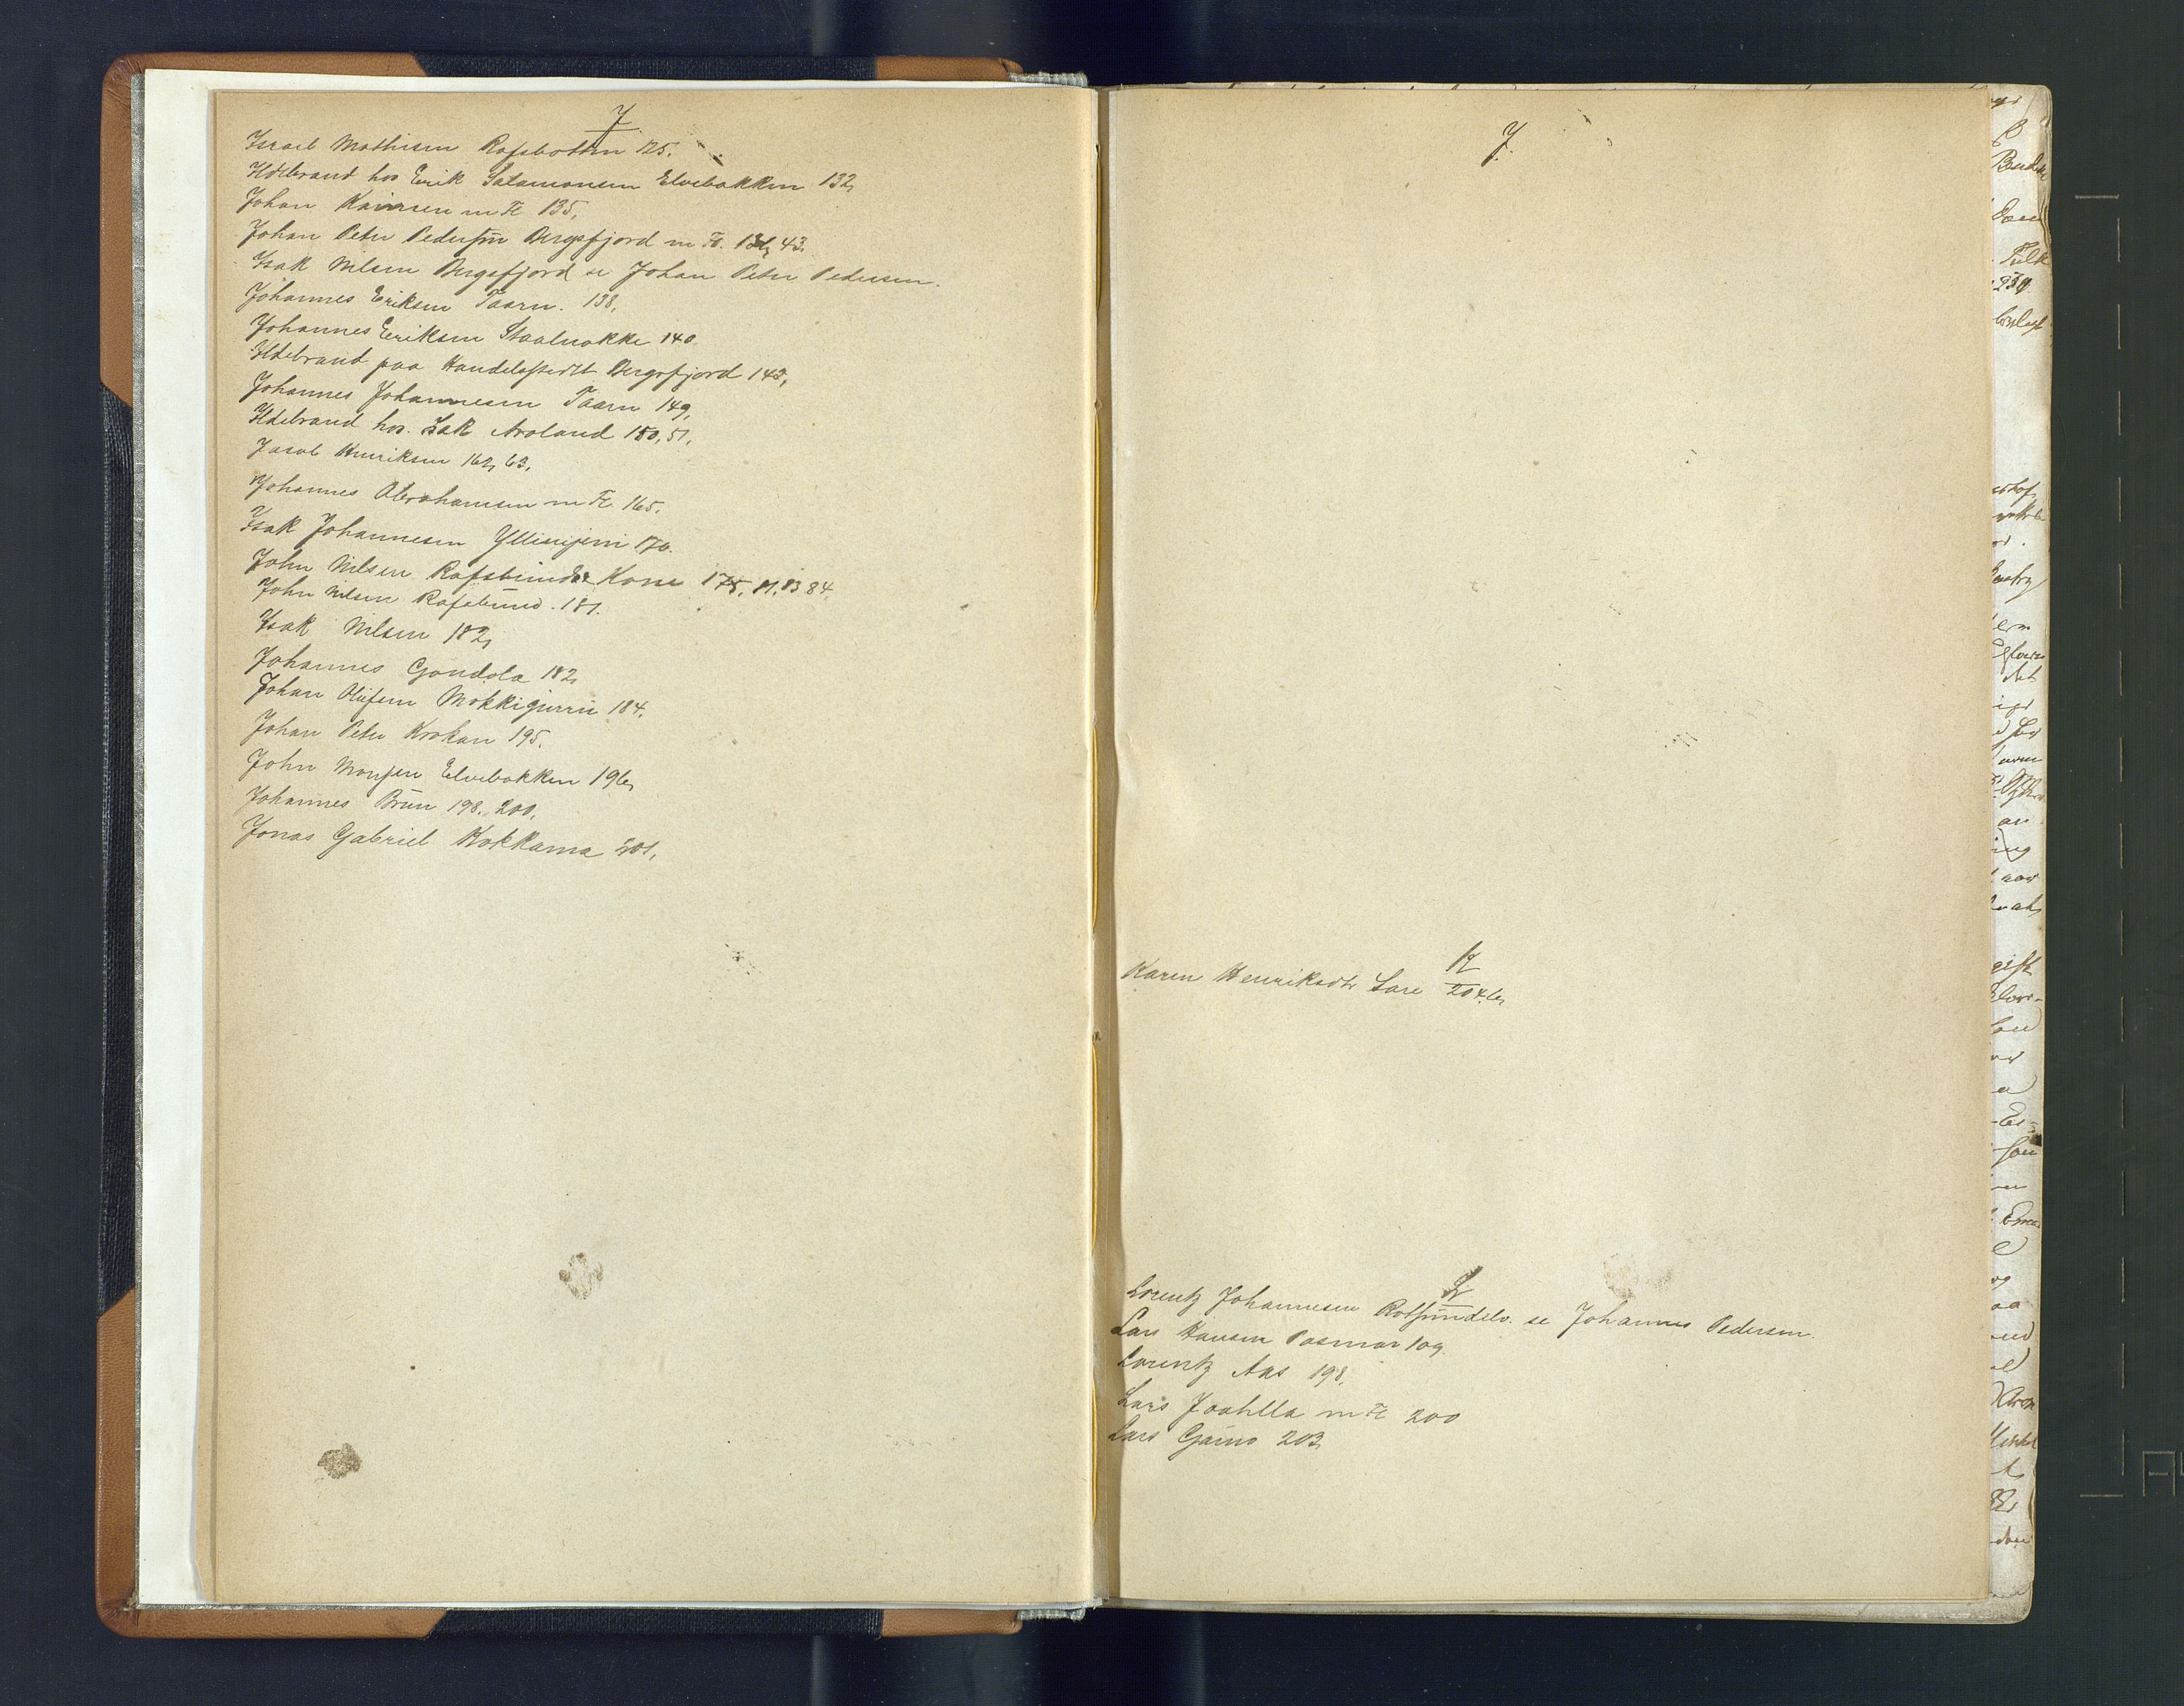 J
Israel Mathisen Rafsbotten 125.
Ildebrand hos Erik Salamonsen Elvebakken 132,
Johan Kaivisen m Fl 135,
Johan Peter Pedersen Bergsfjord m Fl. 136, 43.
Isak Nilsen Bergsfjord se Johan Peter Pedersen.
Johannes Eriksen Taarn. 138,
Johannes Eeriksen Staalnakke 140
Ildebrand paa Handelsstedet Bergsfjord 143,
Johannes Johannesen Taarn 149,
Ildebrand hos. Isak Aroland 150, 51,
Jacob Henriksen 162, 63,
Johannes Abrahamsen m Fl. 165,
Isak Johannesen 170.
John Nilsen Rafsbunds Kone 175, 81, 83 84,
John Nilsen Rafsbund. 181.
Isak Nilsen 182,
Johannes Gondola 182,
Johan Olufsen 184,
Johan Peter Krokan 195,
John Monsen Elvebakken 196,
Johannes Brun 198, 200,
Jonas Gabriel Kokkama 201,
J.
K
Karen Henriksdtr Sare 204, 6,
L
Lorentz Johannesen Rotsundelv. se Johannes Pedersen.
Lars Hansen Posmar 109.
Lorentz Aas 198,
Lars Joahlla m Fl 200
Lars Gaino 203,